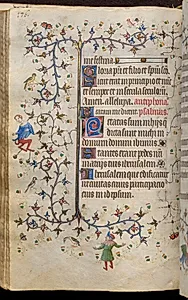 me festina.
Gloria patri et filio et spiritui
Sicut erat in principio et nunc
et semper et in secula seculorum
Amen. alleluya. antephona
psalmus.
Letatus sum in hijs que
dicta sunt michi in
domum domini ibimus.
Stantes erant pedes nostri
in atrijs tuis iherusalem.
Iherusalem que edificatur
ut civitas cuius participacio
eius in idipsum.